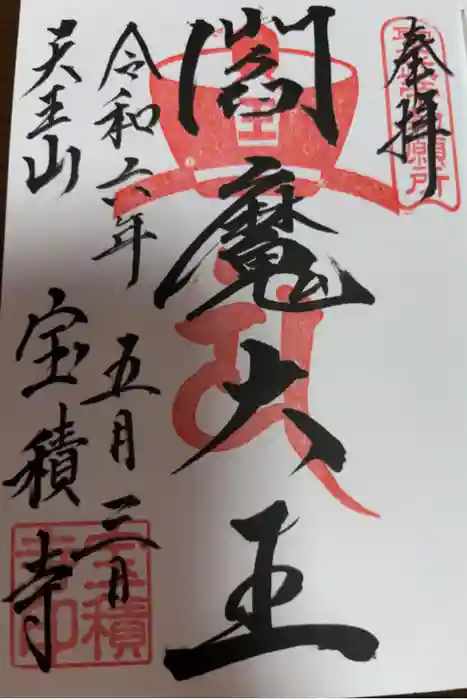 奉拝
願所
王
閻魔大王
令和六年五月三日
天王山
宝積寺
宝積寺印